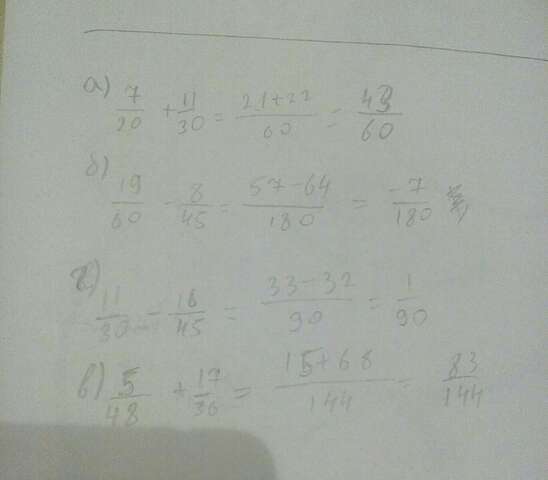 а) 7/20 + 11/30 = 21+22/60 = 43/60
б) 19/60 - 8/45 = 57-64/180 = -7/180
г) 11/30 - 16/45 = 33-32/90 = 1/90
в) 5/48 + 17/36 = 15+68/144 = 83/144